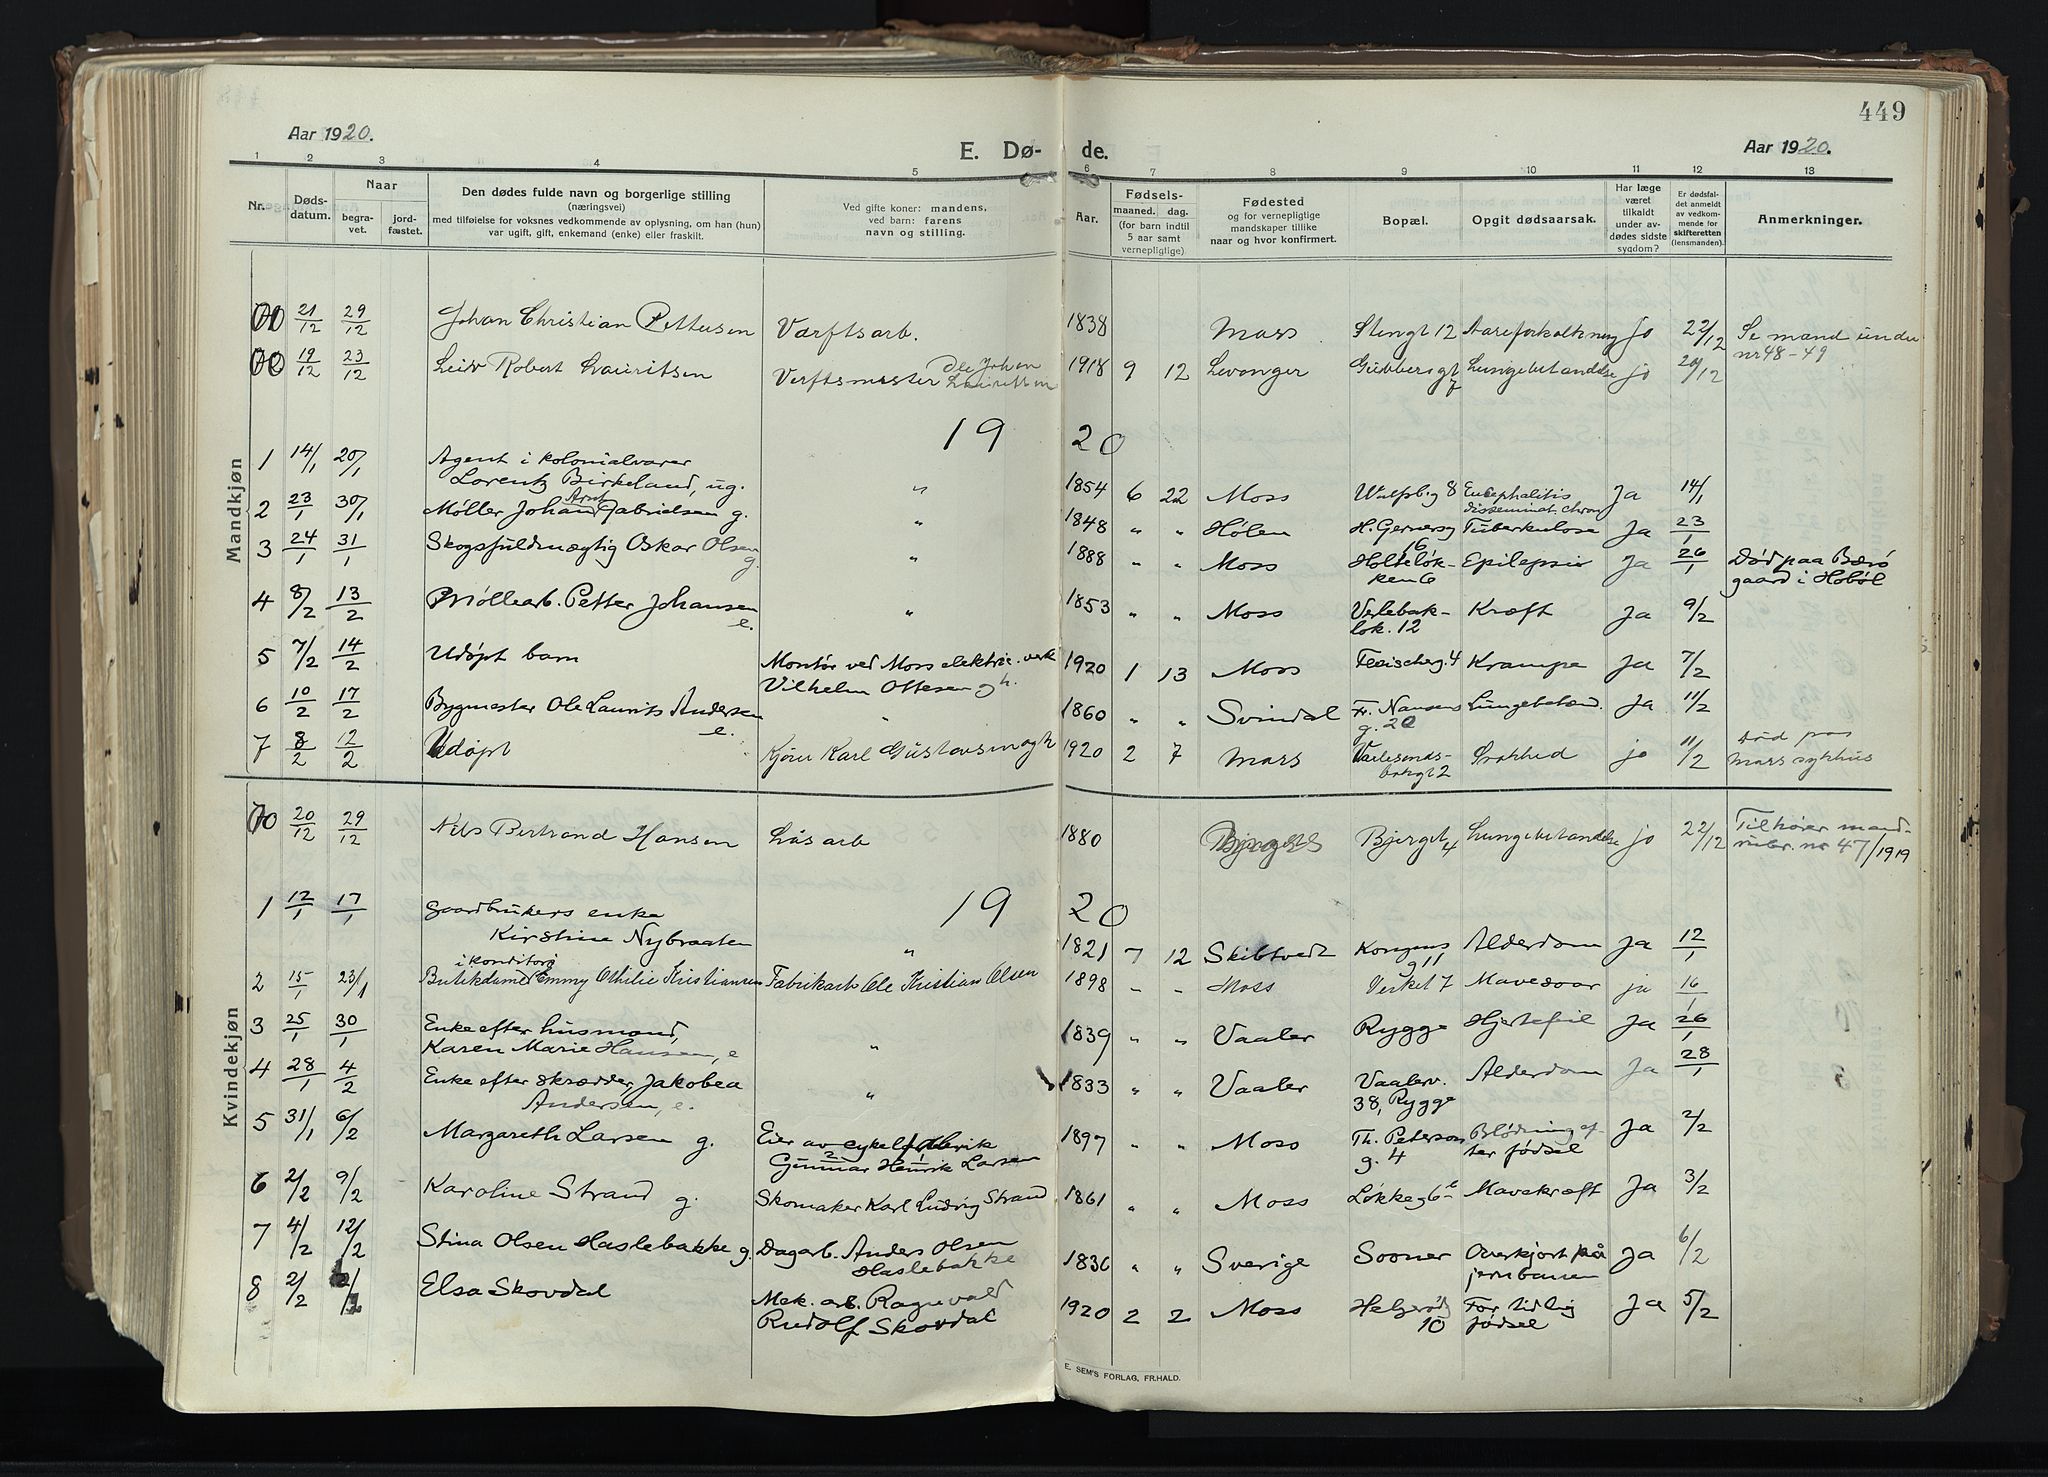 449
Aar 1920.
E. Dø- de.
Aar 1920.
1 2 3 4 5 6 7 8 9 10 11 12 13
Nr.
Døds-
datum.
Naar
begra-
vet.
jord-
fæstet.
Den dødes fulde navn og borgerlige stilling
(næringsvei)
med tilføielse for voksnes vedkommende av oplysning, om han (hun)
var ugift, gift, enkemand (enke) eller fraskilt.
Ved gifte koner: mandens,
ved barn: farens
navn og stilling.
Aar.
Fødsels-
maaned. dag.
(for barn indtil
5 aar samt
vernepligtige)
Fødested
og for vernepligtige
mandskaper tillike
naar og hvor konfirmert.
Bopæl.
Opgit dødsaarsak.
Har læge
været
tilkaldt
under av-
dødes sidste
sygdom?
Er dødsfal-
det anmeldt
av vedkom-
mende for
skifteretten
(lensmanden).
Anmerkninger.
Mandkjøn
21/12 29/12 Johan Christian Pettersen Værftsarb. 1838 Moss Stengt 12 Aareforkalkning jo 22/12 Se mand under
nr 48-49
19/12 23/12 Leiv Robert Lauritsen Verftsmester Ole Johan
Lauritsen 1918 9 12 Levanger Gudbergsgt
7 Lungebetændelse jo 20/12
19 20
1 14/1 20/1 Agent i kolonialvarer
Lorentz Birkeland, ug. " 1854 6 22 Moss 8 Encephalitis
disseminat. chron Ja 14/1
2 23/1 30/1 Møller Johan Arnt Gabrielsen g. " 1848 " " Hølen H. Gernersg
16 Tuberkulose Ja 23/1
3 24/1 31/1 Skogsfuldmægtig Oskar Olsen
g. " 1888 " " Moss Holteløk-
ken 6 Epilepsie Ja 26/1 Død paa Bærø
gaard i Hobøl
4 8/2 13/2 Møllearb. Petter Johansen
e. " 1853 " " Moss Verlebak-
løk. 12 Kræft Ja 9/2
5 7/2 14/2 Udøpt barn Montør ved Moss elektric. verk
Vilhelm Ottesen gh. 1920 1 13 Moss Fleischerg. 4 Krampe Ja 7/2
6 10/2 17/2 Bygmester Ole Laurits Andersen
e. " 1860 " " Svindal Fr. Nansens
g. 20 Lungebetænd. Ja 11/2
7 8/2 12/2 Udøpt Kjører Karl Gustavsen ogh 1920 2 7 Moss
2 Svakhed jo 11/2 Død paa
Moss sykhus
Kvindekjøn
20/12 29/12 Nils Bertrand Hansen Løsarb 1880 Bjergt
4 Lungebetændelse jo 22/12 Tilhører mand-
nr 47/1919
19 20
1 12/1 17/1 Gaardbrukers enke
Kirstine Nybraaten " 1821 7 12 Skibtvedt Kongens
g 11 Alderdom Ja 12/1
2 15/1 23/1 Butikdame i konditori Emmy Othilie Kristiansen Fabrikarb Ole Kristian Olsen 1898 - - Moss Verket 7 Mavesaar ja 16/1
3 25/1 30/1 Enke efter husmand,
Karen Marie Hansen, e " 1839 " " Vaaler Rygge Hjertefeil Ja 26/1
4 28/1 4/2 Enke efter skrædder, Jakobea
Andersen, e. " 1833 " " Vaaler Vaalerv.
38, Rygge Alderdom Ja 28/1
5 31/1 6/2 Margareth Larsen g. Eier av cykelfabrik
Gunnar Henrik Larsen 1897 " " Moss Th. Peterson
g. 4 Blødning ef-
ter fødsel Ja 2/2
6 2/2 9/2 Karoline Strand g. Skomaker Karl Ludvig Strand 1861 " " Moss Løkkeg 6b Mavekræft Ja 3/2
7 4/2 12/2 Stina Olsen Haslebakke g. Dagarb. Anders Olsen
Haslebakke 1836 " " Sverige Sooner Overkjørt på
jernbanen Ja 6/2
8 2/2 Elsa Skovdal Mek. arb. Ragnvald
Rudolf Skovdal 1920 2 2 Moss Helgerødg
10 For tidlig
fødsel Ja 5/2
E. SEM'S FORLAG, FR.HALD.